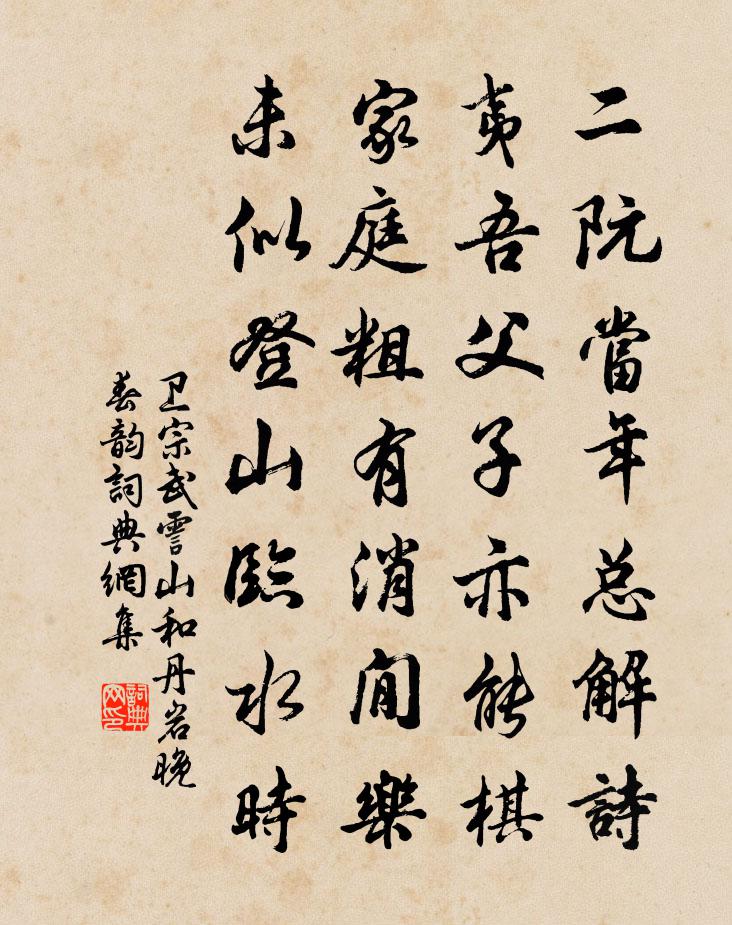 二阮當年总解詩
夷吾父子亦能棋
家庭粗有消閒樂
未似登山臨水時
卫宗武霅山和丹岩晚
春韵詞典網集
詞典网印